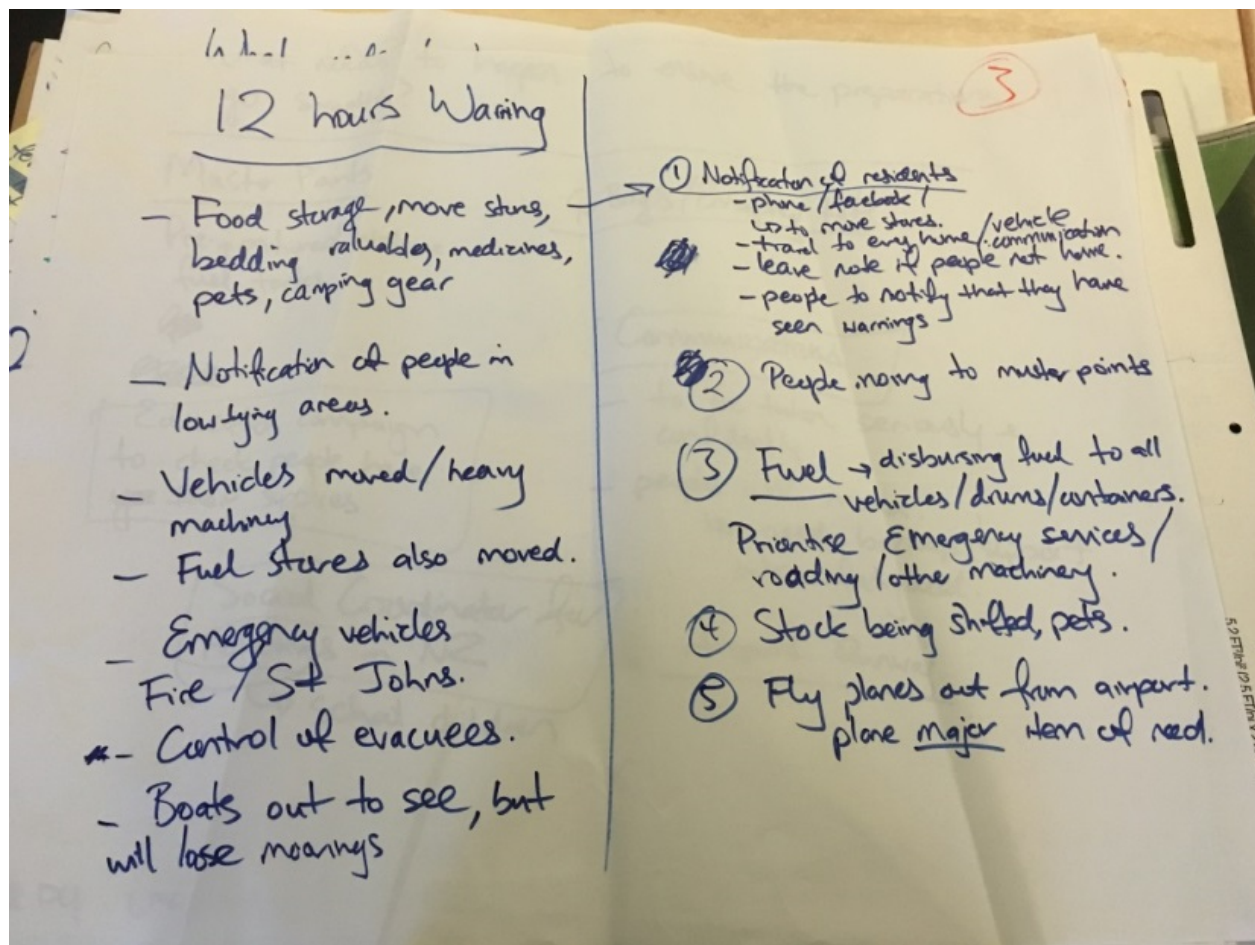 12 hours Waring
- Food storage, move stores,
bedding valuables, medicines,
pets, camping gear
- Notification of people in
low-lying areas.
- Vehicles moved/heavy
machinery
- Fuel stores also moved.
- Emergency vehicles
Fire / St Johns.
- Control of evacuees.
- Boats out to see, but
will lose moorings
3
① Notification of residents
- phone / facebook /
↳ to move stores.
- travel to every home / vehicle
communication
- leave note if people not home.
- people to notify that they have
seen warnings
② People moving to muster points
③ Fuel → disbursing fuel to all
vehicles/drums/containers.
Prioritise Emergency services/
roading / other machinery.
④ Stock being shifted, pets.
⑤ Fly planes out from airport.
plane major item of need.